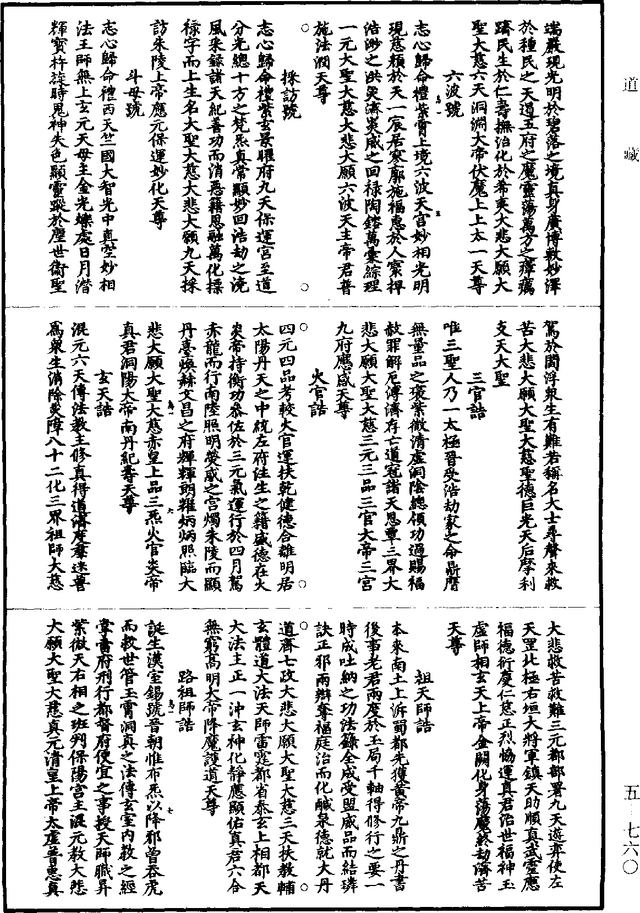 道藏
五－七六〇
端嚴現光明於碧落之境真身廣博敷妙澤
於種民之天道王府之魔靈蕩萬方之癉癘
躋民生於仁壽撫治化於希夷大悲大願大
聖大慈六天洞淵大帝伏魔上上太一天尊
六波號
志心歸命禮紫霄上境六波天官妙相光明
現慈顏於天一宸居寥廓施福惠於人寰捍
浩渺之洪災濟炎威之回祿陶鎔萬彙綜理
一元大聖大慈大悲大願六波天主帝君普
施法潤天尊
採訪號
志心歸命禮紫玄景曜府九天保運宮至道
分光總十方之梵炁真常顯妙回浩劫之澆
風采錄諸天紀善功而消惡籍恩融萬化標
祿字而上生名大聖大慈大悲大願九天採
訪朱陵上帝應元保運妙化天尊
斗母號
志心歸命禮西天竺國大智光中真空妙相
法王師無上玄元天母主金光爍處日月潛
輝寶杵旋時鬼神失色顯靈蹤於塵世衛聖
駕於閻浮眾生有難若稱名大士尋聲來救
苦大悲大願大聖大慈聖德巨光天后摩利
支天大聖
三官誥
唯三聖人乃一太極晉受浩劫家之命鼎膺
無量品之褒紫微清虛洞陰總領功過賜福
赦罪解厄溥濟存亡道冠諸天恩覃三界大
悲大願大聖大慈三元三品三官大帝三宮
九府應感天尊
火官誥
四元四品考較火官運扶乾健德合離明居
太陽丹天之中統左府注生之籍威德在火
炎帝持衡功叅佐於三元氣運行於四月駕
赤龍而行南陸照明熒威之宮燭朱陵而顯
丹臺煥赫文昌之府輝輝朗耀炳炳照臨大
悲大願大聖大慈赤皇上品三炁火官炎帝
真君洞陽大帝南丹紀壽天尊
玄天誥
混元六天傳法教主修真得道濟度羣迷普
為眾生消除災障八十二化三界祖師大慈
大悲救苦救難三元都部署九天遊弈使左
天罡北極右垣大將軍鎮天助順真武靈應
福德衍慶仁慈正烈協運真君治世福神玉
虛師相玄天上帝金闕化身蕩魔終劫濟苦
天尊
祖天師誥
本來南土上泝蜀都先獲黃帝九鼎之丹書
後事老君兩度於玉局千軸得修行之要一
時成吐納之功法籙全成受盟威品而結璘
訣正邪兩辨奪福庭治而化鹹泉德就大丹
道齊七政大悲大願大聖大慈三天扶教輔
玄體道大法天師雷霆都省泰玄上相都天
大法主正一沖玄神化靜應顯佑真君六合
無窮高明大帝降魔護道天尊
路祖師誥
誕生漢室錫號晉朝惟布炁以降邪曾吞虎
而救世管玉霄洞真之法傳玄室內教之經
掌書府刑行都督府便宜之事授天師職昇
紫微天右相之班判保陽宮主混元教大悲
大願大聖大慈真元清皇上帝太虛普惠真